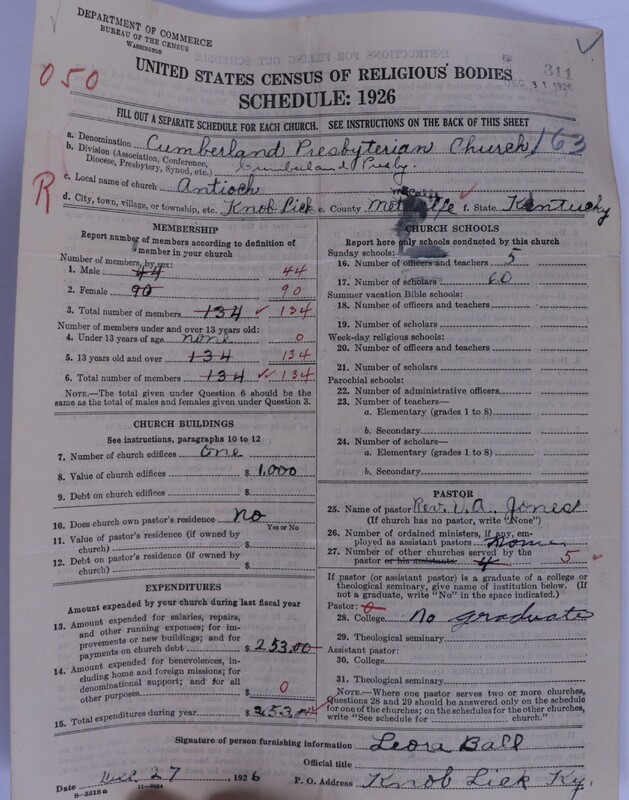 DEPARTMENT OF COMMERCE
BUREAU OF THE CENSUS
WASHINGTON
311
DEC 31 1926
050
UNITED STATES CENSUS OF RELIGIOUS BODIES
SCHEDULE: 1926
FILL OUT A SEPARATE SCHEDULE FOR EACH CHURCH. SEE INSTRUCTIONS ON THE BACK OF THIS SHEET
a. Denomination Cumberland Presbyterian Church 163
b. Division (Association, Conference, Diocese, Presbytery, Synod, etc.) Cumberland Presby.
c. Local name of church Antioch
R
d. City, town, village, or township, etc. Knob Lick e. County Metcalfe f. State Kentucky
MEMBERSHIP
Report number of members according to definition of member in your church
Number of members, by sex:
1. Male 44 44
2. Female 90 90
3. Total number of members 134 134
Number of members under and over 13 years old:
4. Under 13 years of age none 0
5. 13 years old and over 134 134
6. Total number of members 134 134
NOTE.—The total given under Question 6 should be the same as the total of males and females given under Question 3.
CHURCH BUILDINGS
See instructions, paragraphs 10 to 12
7. Number of church edifices One
8. Value of church edifices $ 1,000
9. Debt on church edifices $
10. Does church own pastor's residence No
Yes or No
11. Value of pastor's residence (if owned by church) $
12. Debt on pastor's residence (if owned by church) $
EXPENDITURES
Amount expended by your church during last fiscal year
13. Amount expended for salaries, repairs, and other running expenses; for improvements or new buildings; and for payments on church debt $ 253.00
14. Amount expended for benevolences, including home and foreign missions; for denominational support; and for all other purposes $ 0
15. Total expenditures during year $ 253.00
CHURCH SCHOOLS
Report here only schools conducted by this church
Sunday schools:
16. Number of officers and teachers 5
17. Number of scholars 60
Summer vacation Bible schools:
18. Number of officers and teachers
19. Number of scholars
Week-day religious schools:
20. Number of officers and teachers
21. Number of scholars
Parochial schools:
22. Number of administrative officers
23. Number of teachers—
a. Elementary (grades 1 to 8)
b. Secondary
24. Number of scholars—
a. Elementary (grades 1 to 8)
b. Secondary
PASTOR
25. Name of pastor Rev. V. A. Jones
(If church has no pastor, write "None")
26. Number of ordained ministers, if any, employed as assistant pastors None
27. Number of other churches served by the pastor or his assistants 4 5
If pastor (or assistant pastor) is a graduate of a college or theological seminary, give name of institution below. (If not a graduate, write "No" in the space indicated.)
Pastor: 0
28. College No graduate
29. Theological seminary
Assistant pastor:
30. College
31. Theological seminary
NOTE.—Where one pastor serves two or more churches, Questions 28 and 29 should be answered only on the schedule for one of the churches; on the schedules for the other churches, write "See schedule for church."
Signature of person furnishing information Leora Ball
Official title
Date Dec 27 1926 P. O. Address Knob Lick Ky.
8-5518a 11-9024